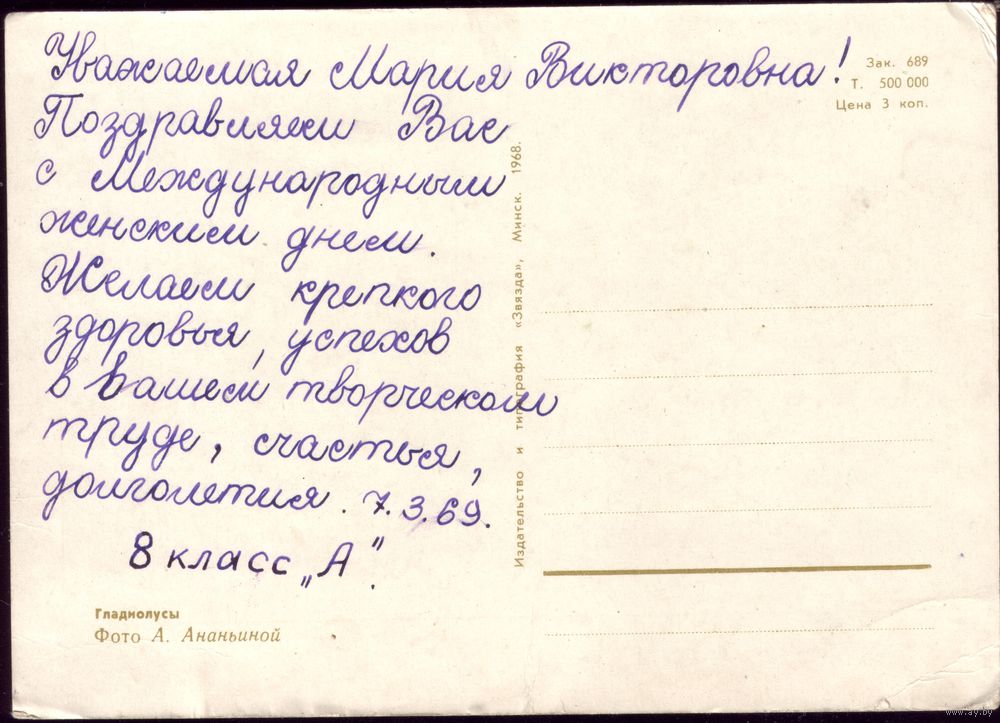 Уважаемая Мария Викторовна!
Поздравляем Вас
с Международным
женским днем.
Желаем крепкого
здоровья, успехов
в Вашем творческом
труде, счастья,
долголетия. 7.3.69.
8 класс „А".
Гладиолусы
Фото А. Ананьиной
Издательство и типография «Звязда», Минск. 1968.
Зак. 689
Т. 500 000
Цена 3 коп.
www.ay.by